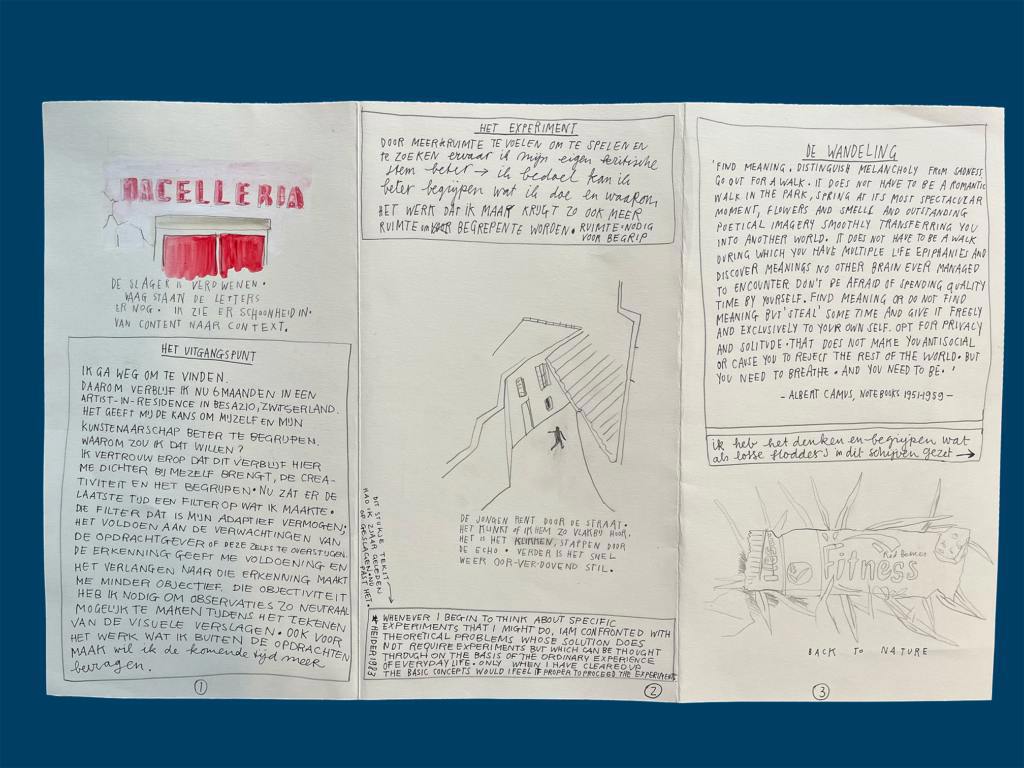 MACELLERIA
DE SLAGER IS VERDWENEN.
VAAG STAAN DE LETTERS
ER NOG. IK ZIE ER SCHOONHEID IN.
VAN CONTENT NAAR CONTEXT.
HET UITGANGSPUNT
IK GA WEG OM TE VINDEN.
DAAROM VERBLIJF IK NU 6 MAANDEN IN EEN
ARTIST-IN-RESIDENCE IN BESAZIO, ZWITSERLAND.
HET GEEFT MIJ DE KANS OM MIJZELF EN MIJN
KUNSTENAARSCHAP BETER TE BEGRIJPEN.
WAAROM ZOU IK DAT WILLEN?
IK VERTROUW EROP DAT DIT VERBLIJF HIER
ME DICHTER BIJ MEZELF BRENGT, DE CREA-
TIVITEIT EN HET BEGRIJPEN. NU ZAT ER DE
LAATSTE TIJD EEN FILTER OP WAT IK MAAKTE.
DIE FILTER DAT IS MIJN ADAPTIEF VERMOGEN;
HET VOLDOEN AAN DE VERWACHTINGEN VAN
DE OPDRACHTGEVER OF DEZE ZELFS TE OVERSTIJGEN.
DE ERKENNING GEEFT ME VOLDOENING EN
HET VERLANGEN NAAR DIE ERKENNING MAAKT
ME MINDER OBJECTIEF. DIE OBJECTIVITEIT
HEB IK NODIG OM OBSERVATIES ZO NEUTRAAL
MOGELIJK TE MAKEN TIJDENS HET TEKENEN
VAN DE VISUELE VERSLAGEN. OOK VOOR
HET WERK WAT IK BUITEN DE OPDRACHTEN
MAAK wil ik de komende tijd meer
bevragen.
1
HET EXPERIMENT
DOOR MEER RUIMTE TE VOELEN OM TE SPELEN EN
te ZOEKEN ervaar ik mijn eigen kritische
stem beter → ik bedoel kan ik
beter begrijpen wat ik doe en waarom,
HET WERK DAT IK MAAK KRIJGT ZO OOK MEER
RUIMTE om BEGREPEN TE WORDEN. RUIMTE NODIG
VOOR BEGRIP
DE JONGEN RENT DOOR DE STRAAT.
HET KLINKT of IK HEM ZO VLAKBIJ HOOR.
HET IS HET STAPPEN DOOR
DE ECHO. VERDER IS HET SNEL
WEER OOR-VER-DOVEND STIL.
DIT STUKJE TEKST →
HAD IK 2 JAAR GELEDEN
OPGESLAGEN. NU PAST HET.
* HEIDER 1983
WHENEVER I BEGIN TO THINK ABOUT SPECIFIC
EXPERIMENTS THAT I MIGHT DO, I AM CONFRONTED WITH
THEORETICAL PROBLEMS WHOSE SOLUTION DOES
NOT REQUIRE EXPERIMENTS BUT WHICH CAN BE THOUGHT
THROUGH ON THE BASIS OF THE ORDINARY EXPERIENCE
OF EVERYDAY LIFE. ONLY WHEN I HAVE CLEARED UP
THE BASIC CONCEPTS WOULD I FEEL IT PROPER TO PROCEED THE EXPERIMENT
2
DE WANDELING
'FIND MEANING. DISTINGUISH MELANCHOLY FROM SADNESS.
GO OUT FOR A WALK. IT DOES NOT HAVE TO BE A ROMANTIC
WALK IN THE PARK, SPRING AT IT'S MOST SPECTACULAR
MOMENT, FLOWERS AND SMELLS AND OUTSTANDING
POETICAL IMAGERY SMOOTHLY TRANSFERRING YOU
INTO ANOTHER WORLD. IT DOES NOT HAVE TO BE A WALK
DURING WHICH YOU HAVE MULTIPLE LIFE EPIPHANIES AND
DISCOVER MEANINGS NO OTHER BRAIN EVER MANAGED
TO ENCOUNTER. DON'T BE AFRAID OF SPENDING QUALITY
TIME BY YOURSELF. FIND MEANING OR DO NOT FIND
MEANING BUT 'STEAL' SOME TIME AND GIVE IT FREELY
AND EXCLUSIVELY TO YOUR OWN SELF. OPT FOR PRIVACY
AND SOLITUDE. THAT DOES NOT MAKE YOU ANTISOCIAL
OR CAUSE YOU TO REJECT THE REST OF THE WORLD. BUT
YOU NEED TO BREATHE. AND YOU NEED TO BE.'
- ALBERT CAMUS, NOTEBOOKS 1951-1959 -
ik heb het denken en begrijpen wat
als losse flodders in dit schijven gezet →
Fitness
BACK TO NATURE
3